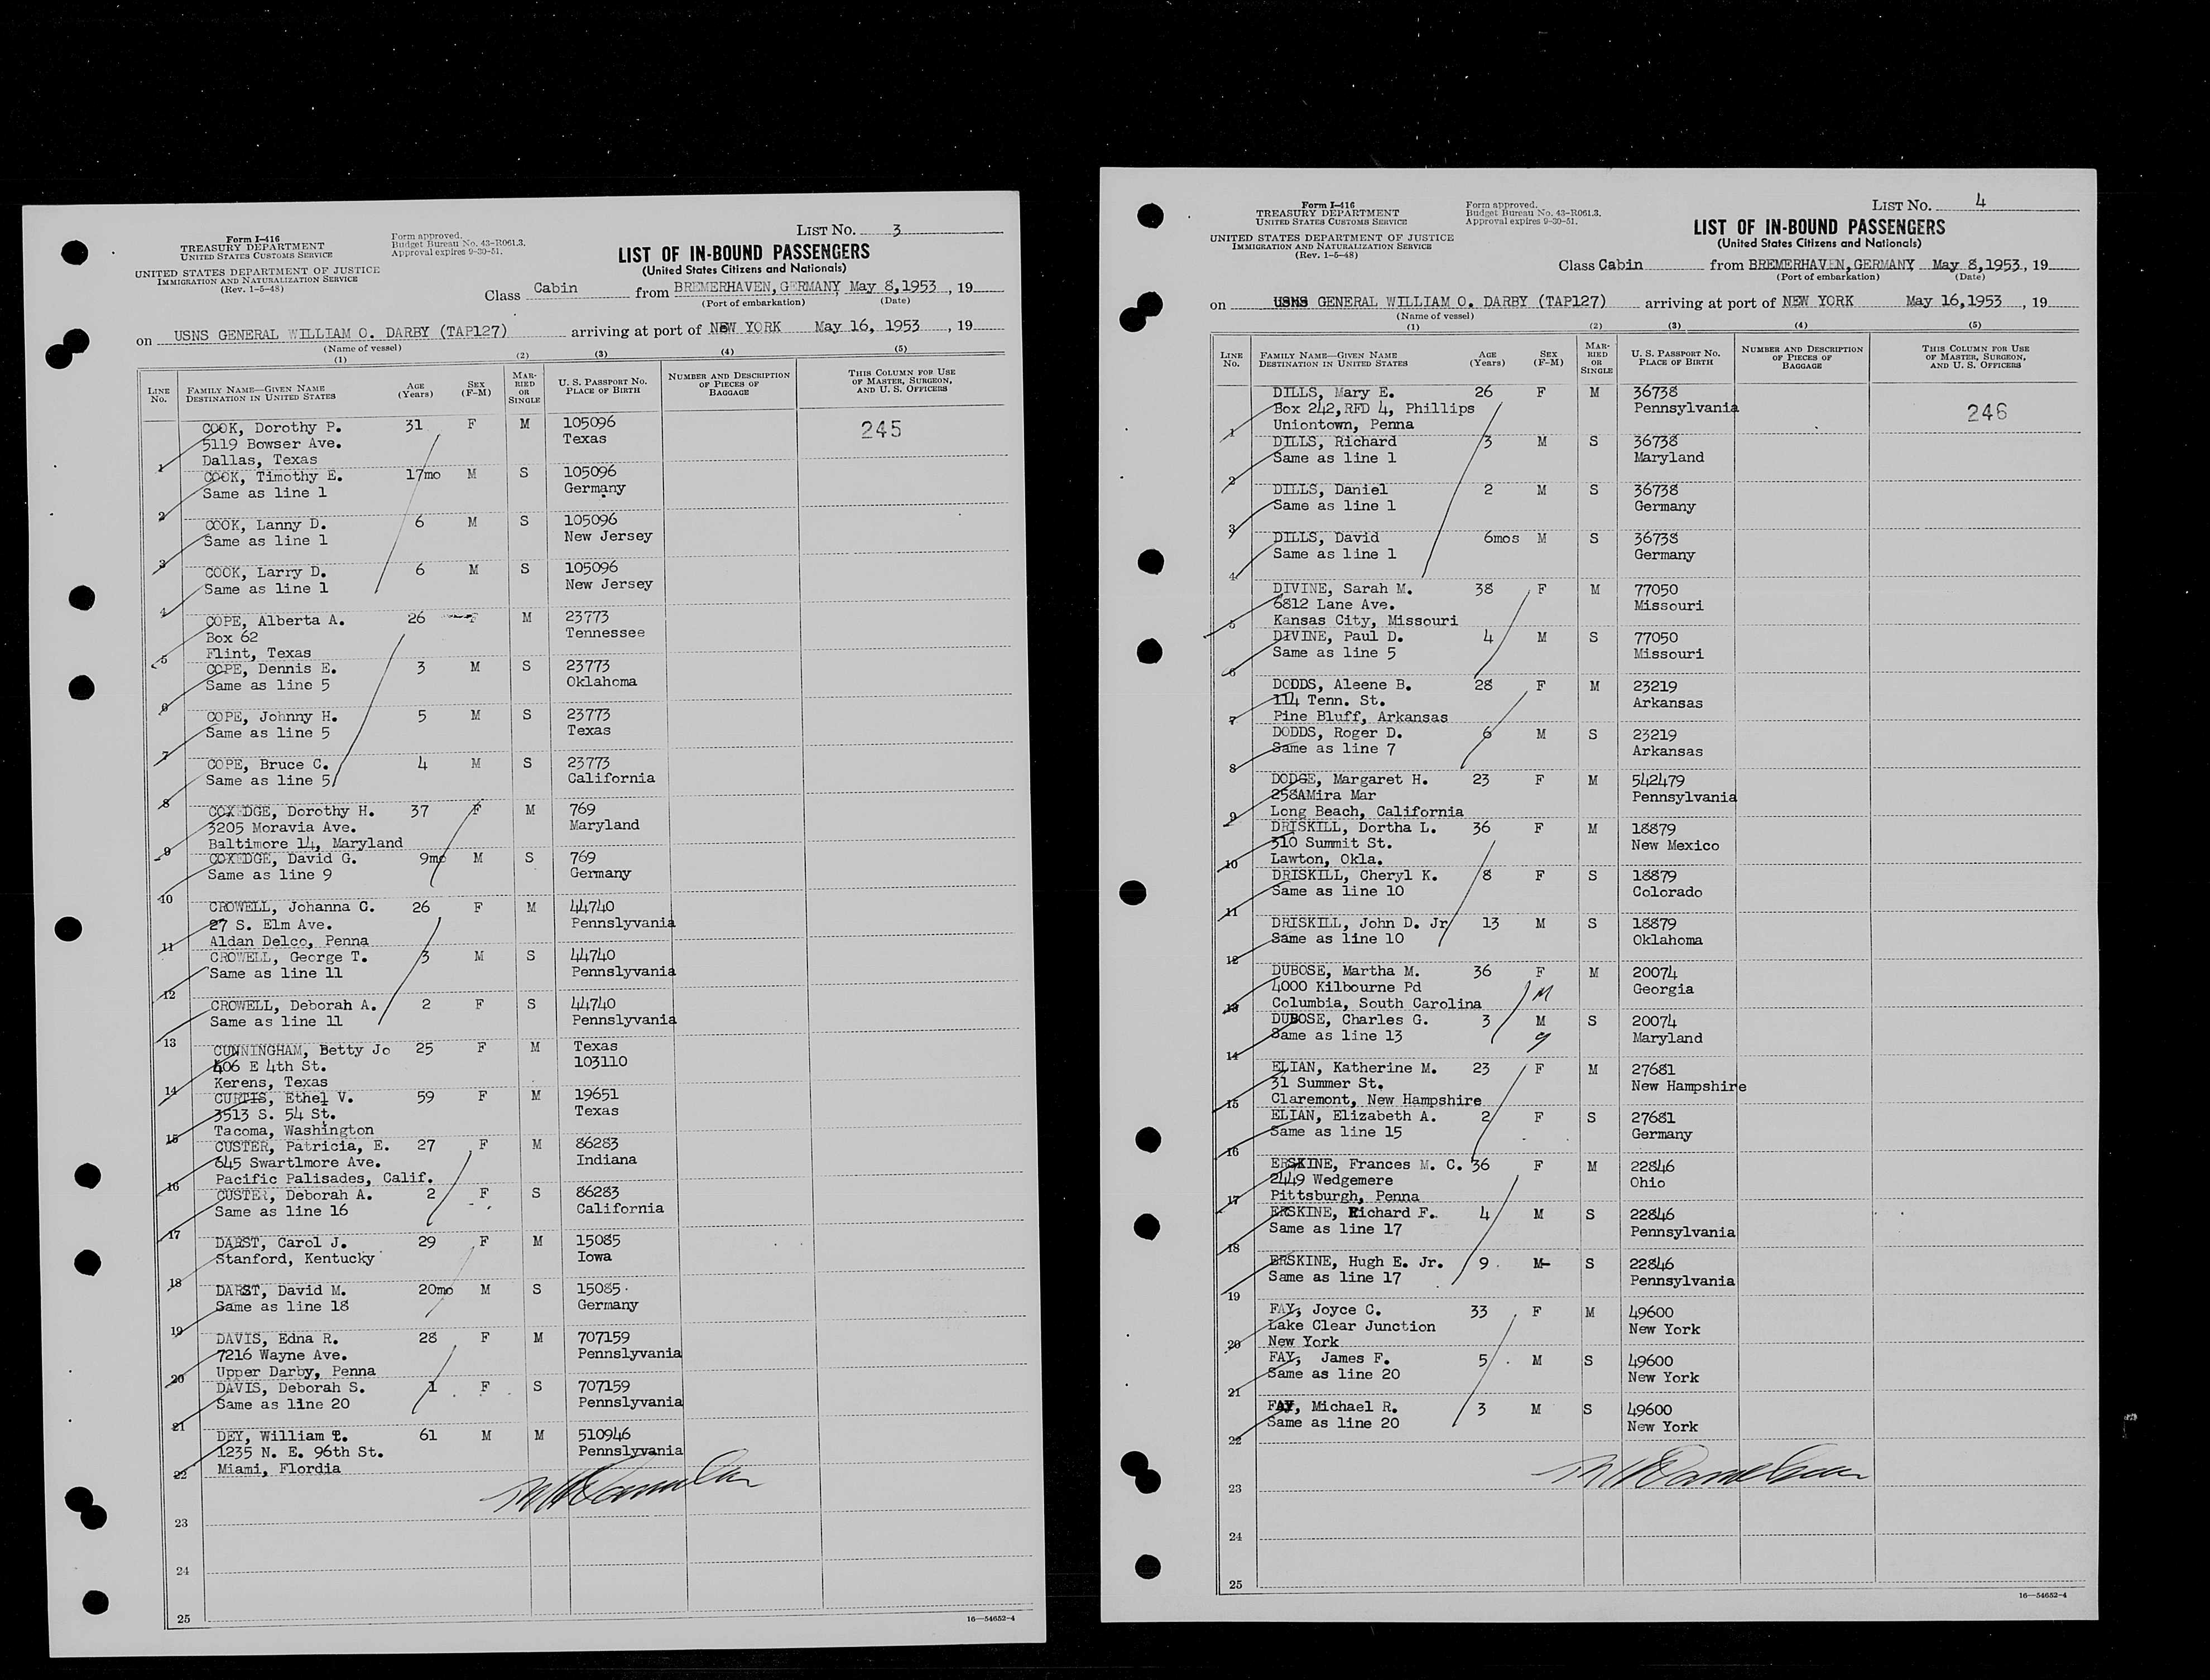 Form I-416
TREASURY DEPARTMENT
UNITED STATES CUSTOMS SERVICE
UNITED STATES DEPARTMENT OF JUSTICE
IMMIGRATION AND NATURALIZATION SERVICE
(Rev. 1-5-48)
Form approved.
Budget Bureau No. 43-R061.3.
Approval expires 9-30-51.
LIST NO. 3
LIST OF IN-BOUND PASSENGERS
(United States Citizens and Nationals)
Class Cabin from BREMERHAVEN, GERMANY May 8,1953, 19
(Port of embarkation) (Date)
on USNS GENERAL WILLIAM O. DARBY (TAP127) arriving at port of NEW YORK May 16, 1953, 19
(Name of vessel)
(1) (2) (3) (4) (5)
LINE NO. FAMILY NAME—GIVEN NAME DESTINATION IN UNITED STATES AGE (Years) SEX (F-M) MARRIED OR SINGLE U. S. PASSPORT NO. PLACE OF BIRTH NUMBER AND DESCRIPTION OF PIECES OF BAGGAGE THIS COLUMN FOR USE OF MASTER, SURGEON, AND U. S. OFFICERS
COOK, Dorothy P. 31 F M 105096
5119 Bowser Ave. Texas 245
1 Dallas, Texas
COOK, Timothy E. 17mo M S 105096
Same as line 1 Germany
2
COOK, Lanny D. 6 M S 105096
Same as line 1 New Jersey
3
COOK, Larry D. 6 M S 105096
Same as line 1 New Jersey
4
COPE, Alberta A. 26 F M 23773
Box 62 Tennessee
5 Flint, Texas
COPE, Dennis E. 3 M S 23773
Same as line 5 Oklahoma
6
COPE, Johnny H. 5 M S 23773
Same as line 5 Texas
7
COPE, Bruce C. 4 M S 23773
Same as line 5 California
8
COXEDGE, Dorothy H. 37 F M 769
3205 Moravia Ave. Maryland
9 Baltimore 14, Maryland
COXEDGE, David G. 9mo M S 769
Same as line 9 Germany
10
CROWELL, Johanna C. 26 F M 44740
27 S. Elm Ave. Pennslyvania
11 Aldan Delco, Penna
CROWELL, George T. 3 M S 44740
Same as line 11 Pennslyvania
12
CROWELL, Deborah A. 2 F S 44740
Same as line 11 Pennslyvania
13
CUNNINGHAM, Betty Jo 25 F M Texas
406 E 4th St. 103110
14 Kerens, Texas
CURTIS, Ethel V. 59 F M 19651
3513 S. 54 St. Texas
15 Tacoma, Washington
CUSTER, Patricia, E. 27 F M 86283
645 Swartlmore Ave. Indiana
16 Pacific Palisades, Calif.
CUSTER, Deborah A. 2 F S 86283
Same as line 16 California
17
DARST, Carol J. 29 F M 15085
Stanford, Kentucky Iowa
18
DARST, David M. 20mo M S 15085
Same as line 18 Germany
19
DAVIS, Edna R. 28 F M 707159
7216 Wayne Ave. Pennslyvania
20 Upper Darby, Penna
DAVIS, Deborah S. 1 F S 707159
Same as line 20 Pennslyvania
21
DEY, William 61 M M 510946
1235 N. E. 96th St. Pennslyvania
22 Miami, Flordia
23
24
25
16—54652-4
Form I-416
TREASURY DEPARTMENT
UNITED STATES CUSTOMS SERVICE
UNITED STATES DEPARTMENT OF JUSTICE
IMMIGRATION AND NATURALIZATION SERVICE
(Rev. 1-5-48)
Form approved.
Budget Bureau No. 43-R061.3.
Approval expires 9-30-51.
LIST NO. 4
LIST OF IN-BOUND PASSENGERS
(United States Citizens and Nationals)
Class Cabin from BREMERHAVEN, GERMANY May 8,1953, 19
(Port of embarkation) (Date)
on USNS GENERAL WILLIAM O. DARBY (TAP127) arriving at port of NEW YORK May 16,1953, 19
(Name of vessel)
(1) (2) (3) (4) (5)
LINE NO. FAMILY NAME—GIVEN NAME DESTINATION IN UNITED STATES AGE (Years) SEX (F-M) MARRIED OR SINGLE U. S. PASSPORT NO. PLACE OF BIRTH NUMBER AND DESCRIPTION OF PIECES OF BAGGAGE THIS COLUMN FOR USE OF MASTER, SURGEON, AND U. S. OFFICERS
DILLS, Mary E. 26 F M 36738
Box 242,RFD 4, Phillips Pennsylvania 246
1 Uniontown, Penna
DILLS, Richard 3 M S 36738
Same as line 1 Maryland
2
DILLS, Daniel 2 M S 36738
Same as line 1 Germany
3
DILLS, David 6mos M S 36738
Same as line 1 Germany
4
DIVINE, Sarah M. 38 F M 77050
6812 Lane Ave. Missouri
5 Kansas City, Missouri
DIVINE, Paul D. 4 M S 77050
Same as line 5 Missouri
6
DODDS, Aleene B. 28 F M 23219
114 Tenn. St. Arkansas
7 Pine Bluff, Arkansas
DODDS, Roger D. 6 M S 23219
Same as line 7 Arkansas
8
DODGE, Margaret H. 23 F M 542479
258AMira Mar Pennsylvania
9 Long Beach, California
DRISKILL, Dortha L. 36 F M 18879
310 Summit St. New Mexico
10 Lawton, Okla.
DRISKILL, Cheryl K. 8 F S 18879
Same as line 10 Colorado
11
DRISKILL, John D. Jr 13 M S 18879
Same as line 10 Oklahoma
12
DUBOSE, Martha M. 36 F M 20074
4000 Kilbourne Pd M Georgia
13 Columbia, South Carolina
DUBOSE, Charles G. 3 M S 20074
Same as line 13 Maryland
14
ELIAN, Katherine M. 23 F M 27681
31 Summer St. New Hampshire
15 Claremont, New Hampshire
ELIAN, Elizabeth A. 2 F S 27681
Same as line 15 Germany
16
ERSKINE, Frances M. C. 36 F M 22846
2449 Wedgemere Ohio
17 Pittsburgh, Penna
ERSKINE, Richard F. 4 M S 22846
Same as line 17 Pennsylvania
18
ERSKINE, Hugh E. Jr. 9 M S 22846
Same as line 17 Pennsylvania
19
FAY, Joyce C. 33 F M 49600
Lake Clear Junction New York
20 New York
FAY, James F. 5 M S 49600
Same as line 20 New York
21
FAY, Michael R. 3 M S 49600
Same as line 20 New York
22
23
24
25
16—54652-4